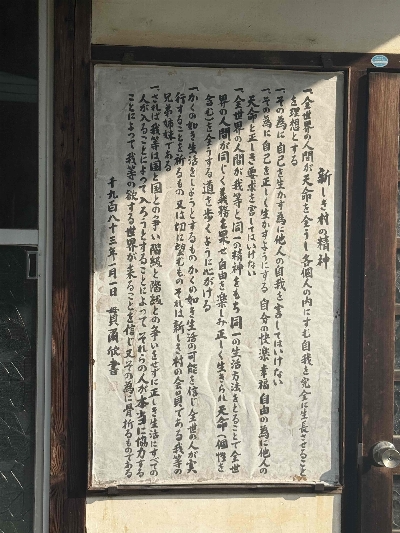 新しき村の精神
一、全世界の人間が天命を全うし各個人の内にすむ自我を完全に生長させること
を理想とする
一、その為に自己を生かす為に他人の自我を害してはいけない
一、その為に自己を正しく生かすようにする 自分の快楽 幸福 自由の為に他人の
天命と正しき要求を害してはいけない
一、全世界の人間が我等と同一の精神をもち 同一の生活方法をとることで全世
界の人間が同じく義務を果せ 自由を楽しみ正しく生きられ 天命(個性を
含む)を全うする道を歩くように心がける
一、かくの如き生活をしようとするもの かくの如き生活の可能を信じ全世の人が実
行することを祈るもの 又は切に望むもの それは新しき村の会員である 我等の
兄弟姉妹である
一、されば我等は国と国との争い 階級と階級との争いをせずに正しき生活にすべての
人が入ることによって 入ろうとすることによって それらの人が本当に協力する
ことによって 我等の欲する世界が来ることを信じ 又その為に骨折るものである
千九百八十三年一月一日